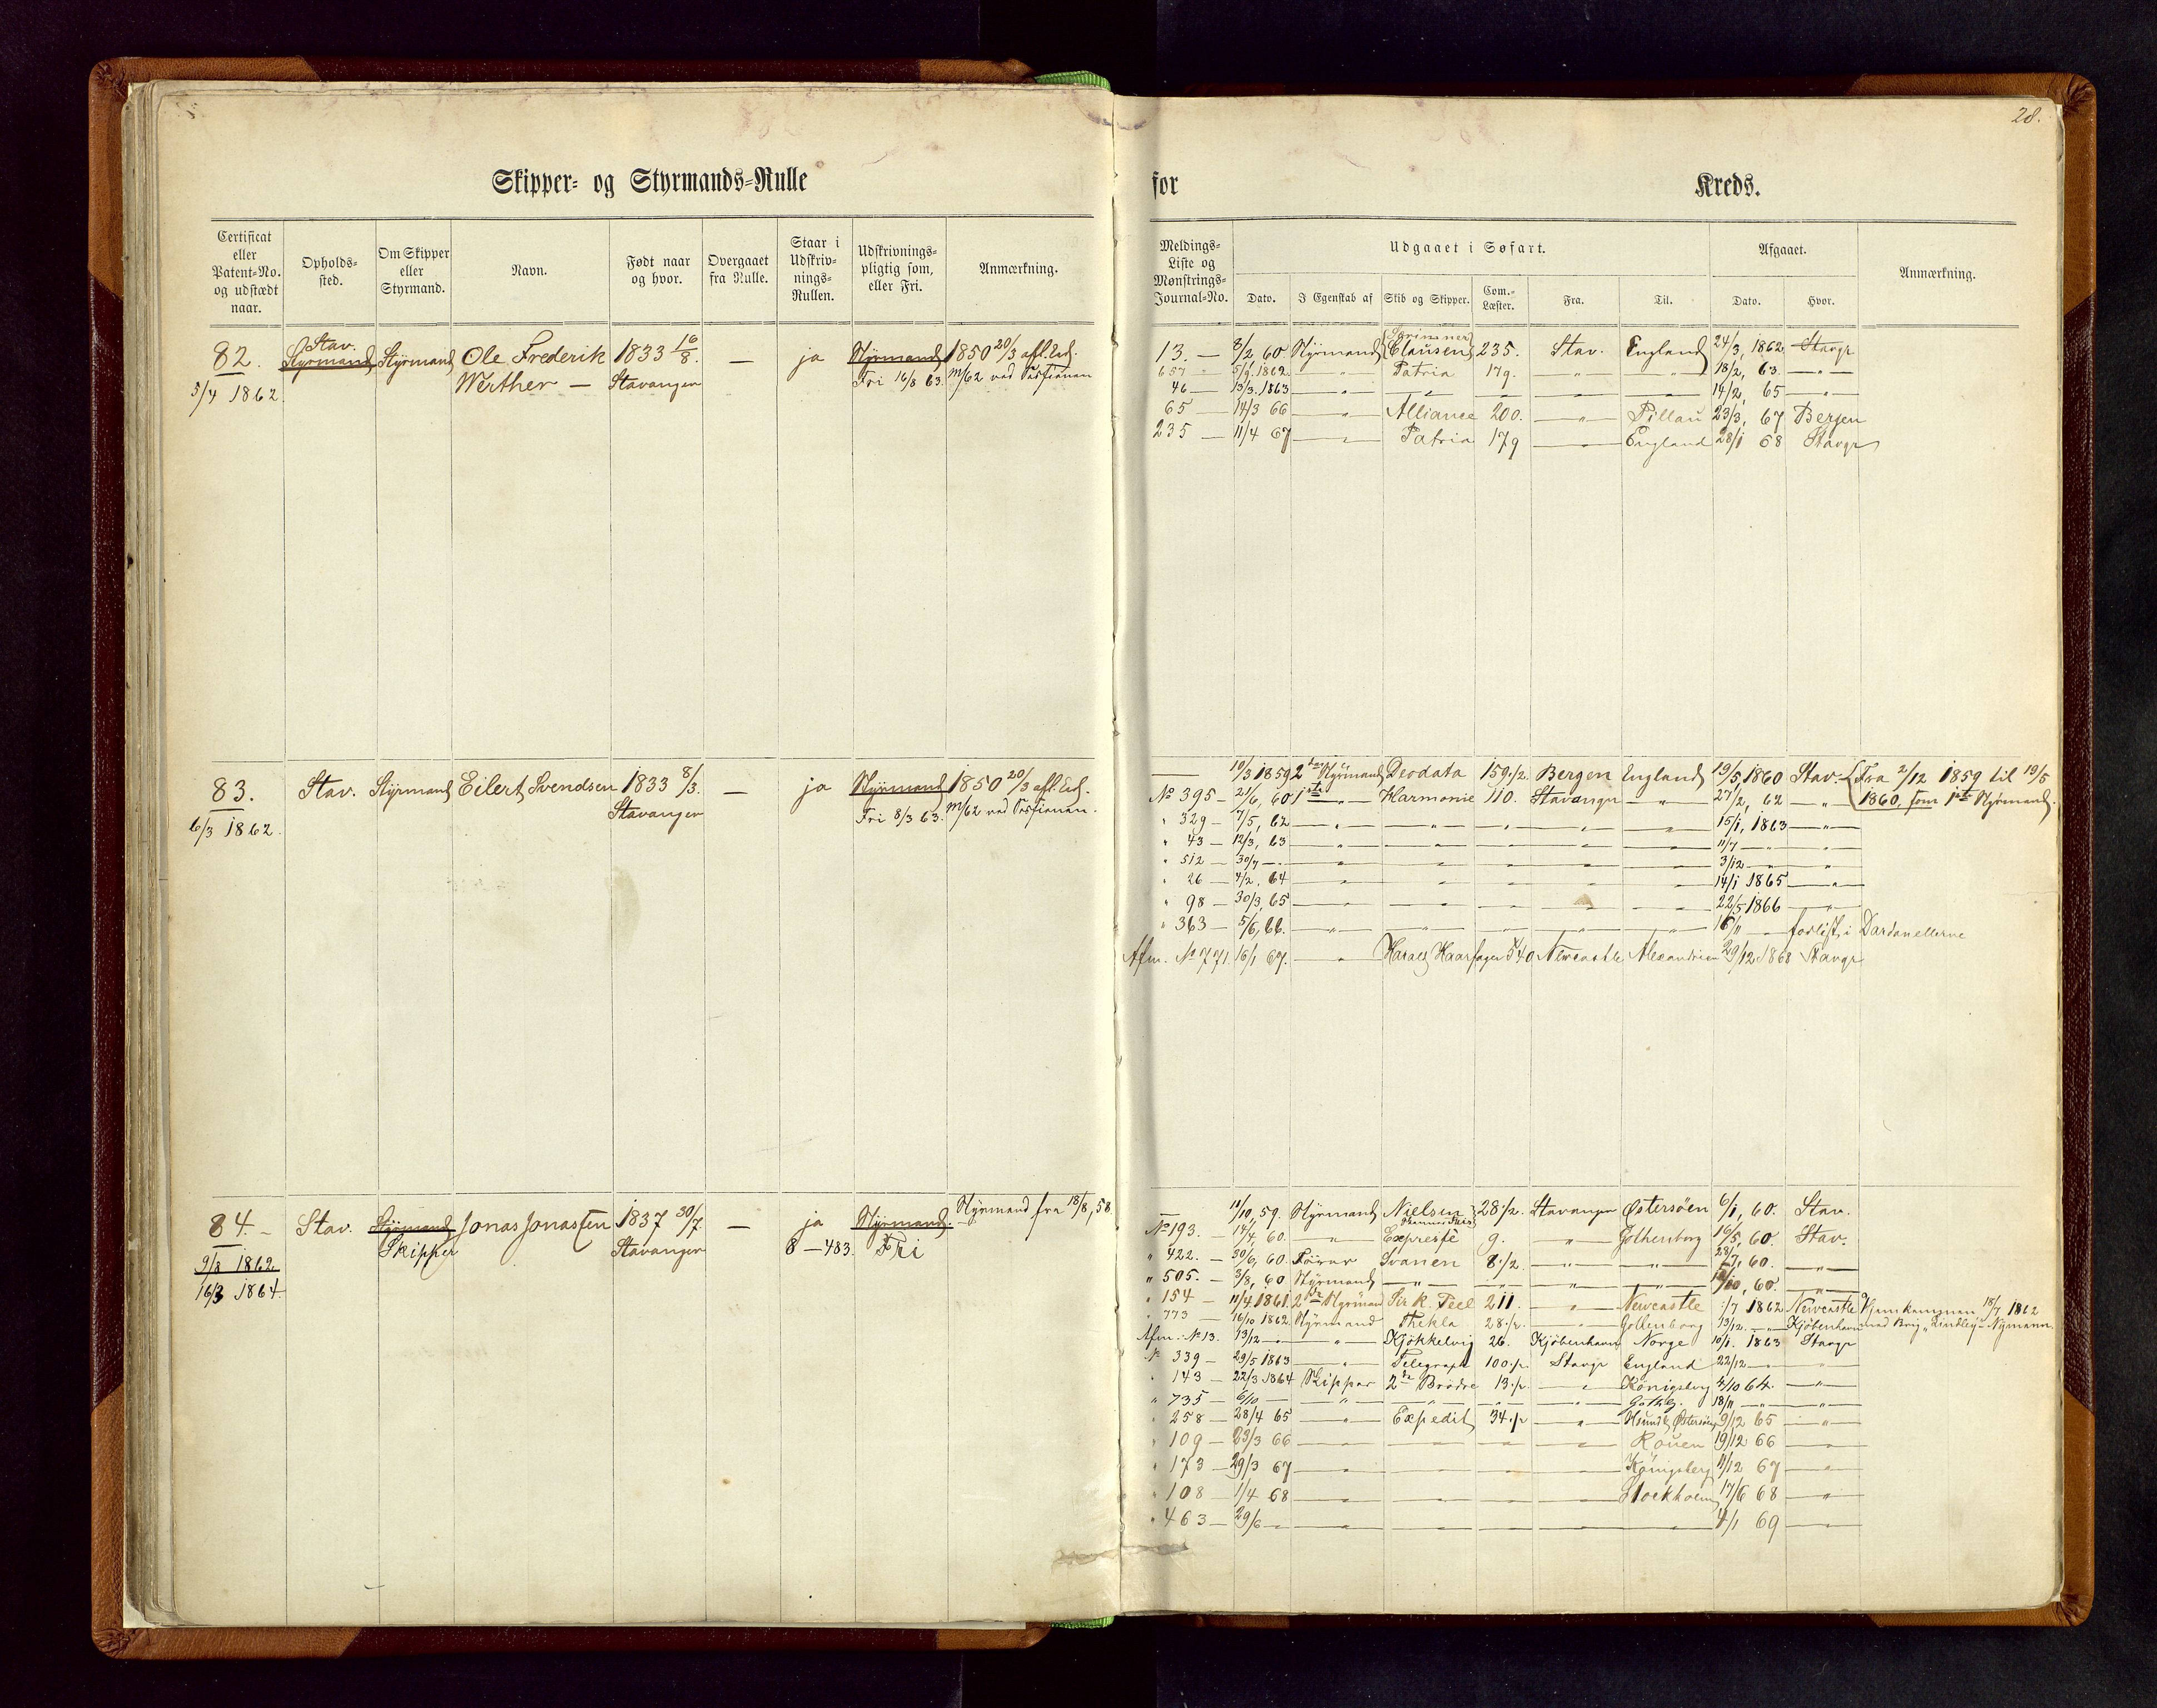 28.
Skipper- og Styrmands-Rulle
for
Kreds.
Certificat eller Patent-No. og udstædt naar.
Opholds-sted.
Om Skipper eller Styrmand.
Navn.
Født naar og hvor.
Overgaaet fra Rulle.
Staar i Udskriv-nings-Rullen.
Udskrivnings-pligtig som, eller Fri.
Anmærkning.
Meldings-Liste og Mønstrings-Journal-No.
Udgaaet i Søfart.
Dato.
I Egenskab af
Skib og Skipper.
Com.-Læster.
Fra.
Til.
Afgaaet.
Dato.
Hvor.
Anmærkning.
82. Stav. Styrmand Styrmand Ole Frederik 1833 16/8. — ja Styrmand 1850 20/3 afl. Ed.
5/4 1862. Werther — Stavanger Fri 16/8 63. m/62 ved
13. — 8/2 60 Styrmand Clausen 235. Stav. England 24/3, 1862 Stavgr
657 " 5/9. 1862. — " — Patria 179. — " — — " — 18/2, 63. — " —
46 — 13/3. 1863 — " — — " — — — — 14/2, 65 — " —
65 — 14/3 66 — " — Alliance 200. — " — Pillau 23/3, 67 Bergen
235 — 11/4 67 — " — Patria 179 — England 28/1 68 Stavgr
83. Stav. Styrmand Eilert Svendsen 1833 8/3. — ja Styrmand 1850 20/3 afl. Ed.
6/3 1862. Stavanger Fri 8/3 63. m/62 ved
— 10/3 1859 2den Styrmand Deodata 159 1/2. Bergen England 19/5, 1860 Stav. Fra 2/12 1859 til 19/5
No 395 — 21/6, 60 1ste — " — Harmonie 110. Stavangr — " — 27/2, 62 — " — 1860, som 1ste Styrmand.
" 329 — 7/5, 62 — " — — " — — " — — " — — " — 15/1, 1863 — " —
" 43 — 12/3, 63 — " — — " — — " — — " — — " — 11/7 — " — — " —
" 512 — 30/7 — " — — " — — " — — " — — " — — " — 3/12 — " — — " —
" 26 — 4/2, 64 — " — — " — — " — — " — — " — 14/1 1865 — " —
" 98 — 30/3, 65 — " — — " — — " — — " — — " — 22/5 1866 — " —
" 363 — 5/6, 66. — " — — " — — " — — " — — " — 16/11 — forlist i Dardanellerne
Afm. No 771. 16/1 67. — " — Harald Haarfager 540 Newcastle Alexandria 29/12 1868 Stavgr
84. — Stav. Styrmand Jonas Jonassen 1837 30/7 — ja Styrmand. Styrmand fra 18/8, 58.
9/8 1862 Skipper Stavanger 8 — 483. Fri
16/3 1864.
11/10, 59. Styrmand Nielsen 28 1/2. Stavanger Østersøen 6/1, 60. Stav.
No 193. — 14/4, 60. — " — Expresse 9. — " — Gothenborg 16/5, 60 Stav.
" 422. — 30/6, 60. Fører Svanen 8 1/2. — " — — " — 28/7, 60. — " —
" 505. — 3/8, 60 Styrmand — " — — " — — " — — " — /10, 60. — " —
" 154 — 11/4. 1861. 2den Styrmand Sir R. Peel 211. — " — Newcastle /7 1862 Newcastle Hjemkommen 18/7 1862
" 773 — 16/10 1862. Styrmand Thekla 28 1/2. — " — Gothenborg 13/12. — " — Kjøbenhavn med Brig "Lindley" Nymann
Afm. No 13. 13/12 — " — — " — Kjøkkelvig 26. Kjøbenhavn Norge 10/1. 1863 Stavgr
No 339 — 29/5 1863 — " — Telegraph 100 1/2. Stavgr England 22/12 — " — — " —
" 143 — 22/3 1864 Skipper 2de Brødre 13 1/2. — " — Königsberg 4/10 64. — " —
" 735 — 6/10 — — " — — " — — " — — " — Gothbg. 18/11 — " — — " —
" 258 — 28/4 65 — " — Expedit 34 1/2 — " — Østersøen 9/12 65 — " —
" 109 — 23/3 66 — " — — " — — " — — " — Rouen 19/12 66 — " —
" 173 — 29/3 67 — " — — " — — " — — " — Königsberg 11/12 67 — " —
" 108 — 1/4 68 — " — — " — — " — — " — Stockholm 17/6 68 — " —
" 463 — 29/6 — " — — " — — " — — " — — " — — " — 4/1 69 — " —